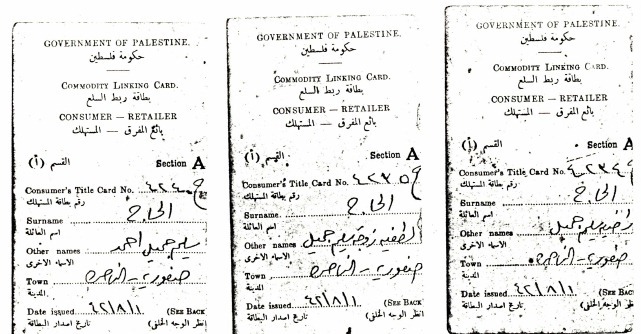 GOVERNMENT OF PALESTINE.
حكومة فلسطين
COMMODITY LINKING CARD.
بطاقة ربط السلع
CONSUMER — RETAILER
بائع المفرق — المستهلك
القسم (أ) Section A
Consumer's Title Card No. ٤٢٤٠
رقم بطاقة المستهلك
Surname الحاج
اسم العائلة
Other names سليم جميل احمد
الاسماء الاخرى
Town صفورية - الناصره
المدينة
Date issued ٤٢/٨/١ (SEE BACK
تاريخ اصدار البطاقة (انظر الوجه الخلفي
GOVERNMENT OF PALESTINE.
حكومة فلسطين
COMMODITY LINKING CARD.
بطاقة ربط السلع
CONSUMER — RETAILER
بائع المفرق — المستهلك
القسم (أ) Section A
Consumer's Title Card No. ٤٢٣٥
رقم بطاقة المستهلك
Surname الحاج
اسم العائلة
Other names لطفيه زوجة سليم جميل
الاسماء الاخرى
Town صفورية - الناصره
المدينة
Date issued ٤٢/٨/١ (SEE BACK
تاريخ اصدار البطاقة (انظر الوجه الخلفي)
GOVERNMENT OF PALESTINE.
حكومة فلسطين
COMMODITY LINKING CARD.
بطاقة ربط السلع
CONSUMER — RETAILER
بائع المفرق — المستهلك
القسم (أ) Section A
Consumer's Title Card No.
رقم بطاقة المستهلك
Surname الحاج
اسم العائلة
Other names سليم جميل
الاسماء الاخرى
Town صفورية - الناصره
المدينة
Date issued ٤٢/٨/١ (SEE BACK
تاريخ اصدار البطاقة (انظر الوجه الخلفي)